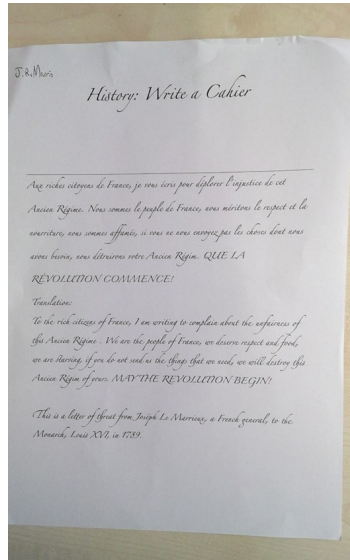 J.R.Morris
History: Write a Cahier
Aux riches citoyens de France, je vous écris pour déplorer l'injustice de cet
Ancien Régime. Nous sommes le peuple de France, nous méritons le respect et la
nourriture, nous sommes affamés, si vous ne nous envoyez pas les choses dont nous
avons besoin, nous détruirons votre Ancien Régim. QUE LA
RÉVOLUTION COMMENCE!
Translation:
To the rich citizens of France, I am writing to complain about the unfairness of
this Ancien Régime . We are the people of France, we deserve respect and food,
we are starving, if you do not send us the things that we need, we will destroy this
Ancien Régim of yours. MAY THE REVOLUTION BEGIN!
This is a letter of threat from Joseph Le Marrieux, a French general, to the
Monarch, Louis XVI, in 1789.